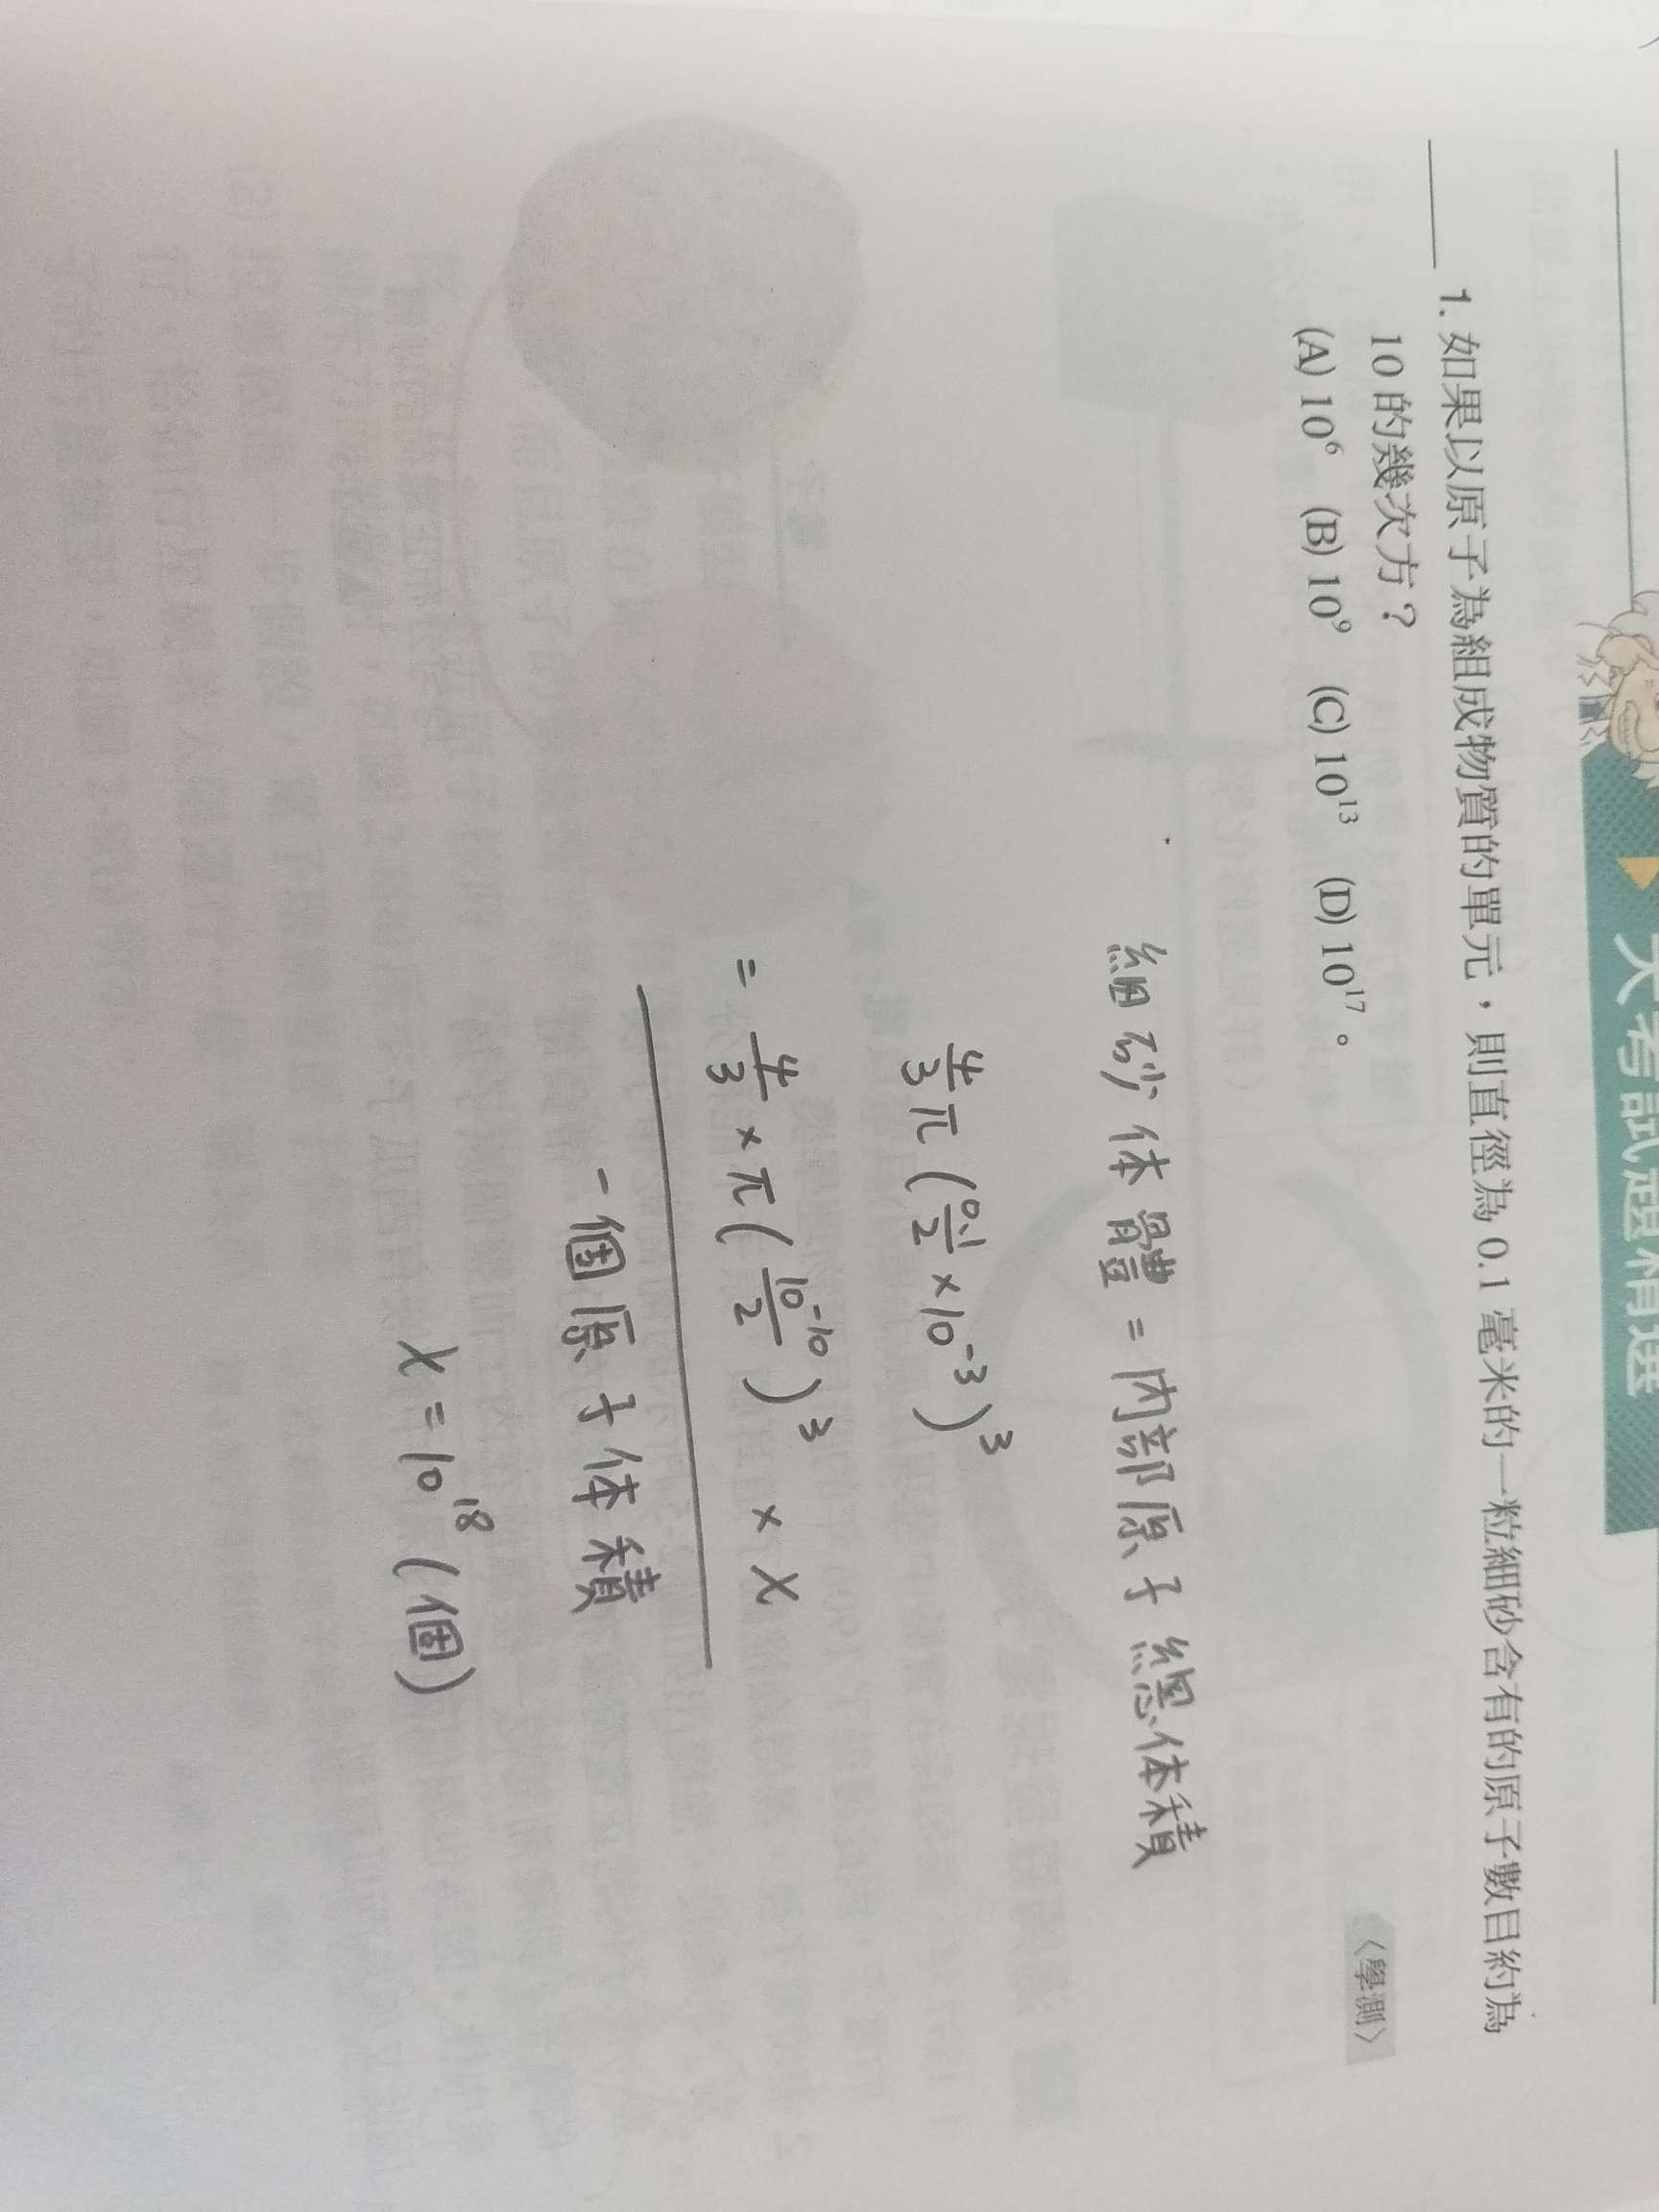 大考試題精選
1. 如果以原子為組成物質的單元，則直徑為 0.1 毫米的一粒細砂含有的原子數目約為
10 的幾次方？
(A) 10⁶ (B) 10⁹ (C) 10¹³ (D) 10¹⁷。
〈學測〉
細砂体體 = 內部原子總体積
4/3 π (0.1/2 × 10⁻³)³
= 4/3 × π (10⁻¹⁰/2)³ × x
一個原子体積
x = 10¹⁸ (個)